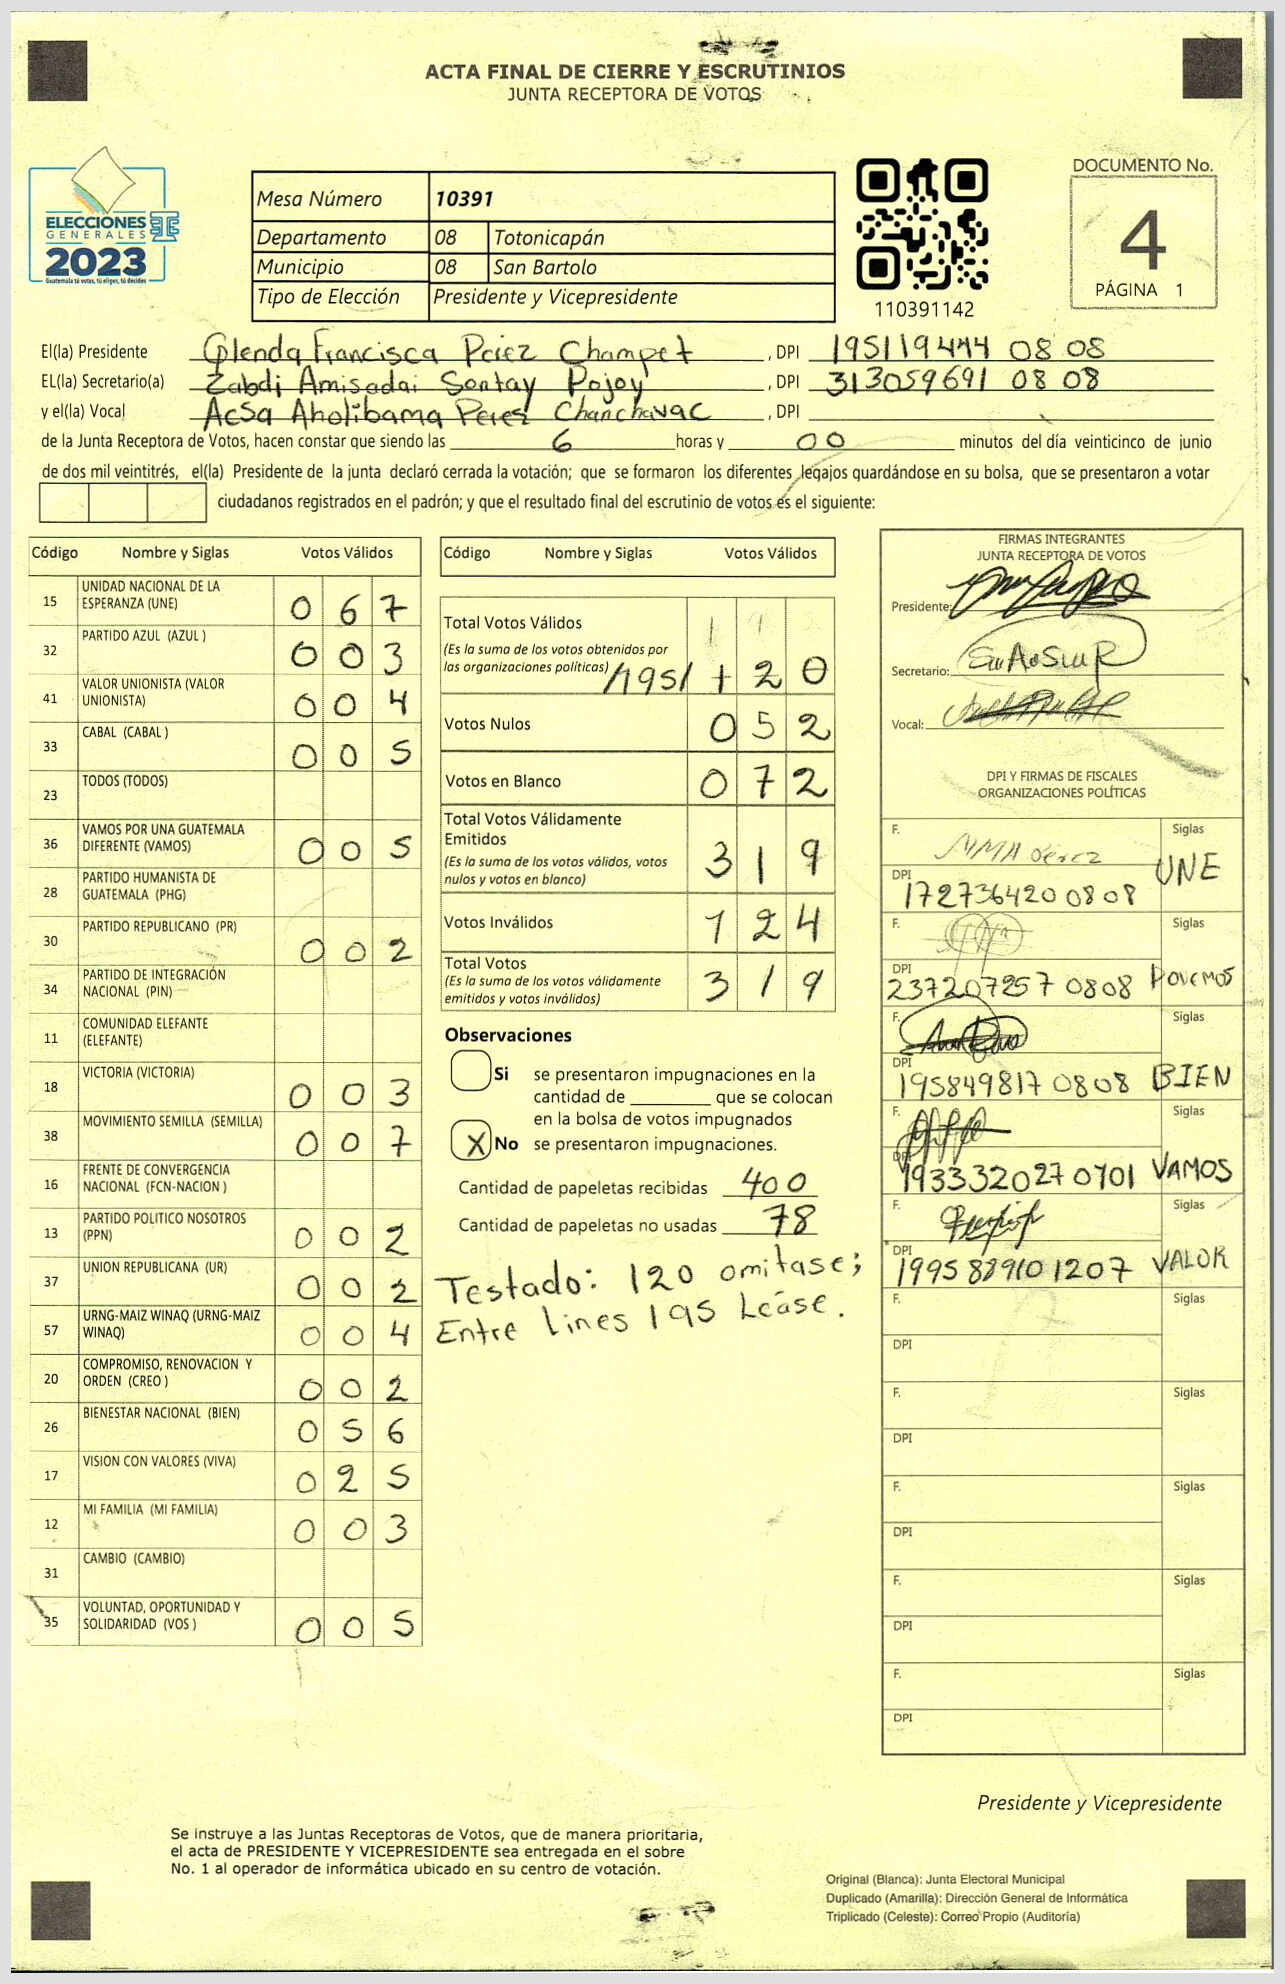 ACTA FINAL DE CIERRE Y ESCRUTINIOS
JUNTA RECEPTORA DE VOTOS
ELECCIONES
GENERALES
2023
Guatemala tú votas, tú eliges, tú decides
Mesa Número 10391
Departamento 08 Totonicapán
Municipio 08 San Bartolo
Tipo de Elección Presidente y Vicepresidente
110391142
DOCUMENTO No.
4
PÁGINA 1
El(la) Presidente Glenda Francisca Pérez Champet, DPI 195119444 08 08
EL(la) Secretario(a) Zabdi Amisadai Sontay Pojoy, DPI 313059691 08 08
y el(la) Vocal Acsa Aholibama Peres Chanchavac, DPI
de la Junta Receptora de Votos, hacen constar que siendo las 6 horas y 00 minutos del día veinticinco de junio
de dos mil veintitrés, el(la) Presidente de la junta declaró cerrada la votación; que se formaron los diferentes legajos guardándose en su bolsa, que se presentaron a votar
ciudadanos registrados en el padrón; y que el resultado final del escrutinio de votos es el siguiente:
Código Nombre y Siglas Votos Válidos
15 UNIDAD NACIONAL DE LA
ESPERANZA (UNE) 067
32 PARTIDO AZUL (AZUL ) 003
41 VALOR UNIONISTA (VALOR
UNIONISTA) 004
33 CABAL (CABAL ) 005
23 TODOS (TODOS)
36 VAMOS POR UNA GUATEMALA
DIFERENTE (VAMOS) 005
28 PARTIDO HUMANISTA DE
GUATEMALA (PHG)
30 PARTIDO REPUBLICANO (PR) 002
34 PARTIDO DE INTEGRACIÓN
NACIONAL (PIN)
11 COMUNIDAD ELEFANTE
(ELEFANTE)
18 VICTORIA (VICTORIA) 003
38 MOVIMIENTO SEMILLA (SEMILLA) 007
16 FRENTE DE CONVERGENCIA
NACIONAL (FCN-NACION )
13 PARTIDO POLITICO NOSOTROS
(PPN) 002
37 UNION REPUBLICANA (UR) 002
57 URNG-MAIZ WINAQ (URNG-MAIZ
WINAQ) 004
20 COMPROMISO, RENOVACION Y
ORDEN (CREO ) 002
26 BIENESTAR NACIONAL (BIEN) 056
17 VISION CON VALORES (VIVA) 025
12 MI FAMILIA (MI FAMILIA) 003
31 CAMBIO (CAMBIO)
35 VOLUNTAD, OPORTUNIDAD Y
SOLIDARIDAD (VOS ) 005
Código Nombre y Siglas Votos Válidos
Total Votos Válidos
(Es la suma de los votos obtenidos por
las organizaciones políticas) /195/ 120
Votos Nulos 052
Votos en Blanco 072
Total Votos Válidamente
Emitidos
(Es la suma de los votos válidos, votos
nulos y votos en blanco) 319
Votos Inválidos 124
Total Votos
(Es la suma de los votos válidamente
emitidos y votos inválidos) 319
Observaciones
Si se presentaron impugnaciones en la
cantidad de ________ que se colocan
en la bolsa de votos impugnados
X No se presentaron impugnaciones.
Cantidad de papeletas recibidas 400
Cantidad de papeletas no usadas 78
Testado: 120 omitase;
Entre lines 195 Léase.
FIRMAS INTEGRANTES
JUNTA RECEPTORA DE VOTOS
Presidente:
Secretario:
Vocal:
DPI Y FIRMAS DE FISCALES
ORGANIZACIONES POLÍTICAS
F. Siglas
DPI 172736420 0808 UNE
F. Siglas
DPI 237207257 0808 Povemos
F. Siglas
DPI 195849817 0808 BIEN
F. Siglas
DPI 193332027 0701 VAMOS
F. Siglas
DPI 199588910 1207 VALOR
F. Siglas
DPI
F. Siglas
DPI
F. Siglas
DPI
F. Siglas
DPI
F. Siglas
DPI
Presidente y Vicepresidente
Se instruye a las Juntas Receptoras de Votos, que de manera prioritaria,
el acta de PRESIDENTE Y VICEPRESIDENTE sea entregada en el sobre
No. 1 al operador de informática ubicado en su centro de votación.
Original (Blanca): Junta Electoral Municipal
Duplicado (Amarilla): Dirección General de Informática
Triplicado (Celeste): Correo Propio (Auditoría)